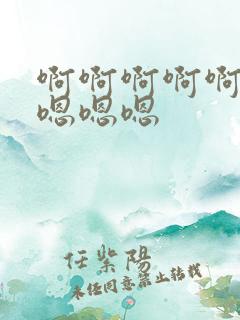 啊啊啊啊啊
嗯嗯嗯
任紫陽
未经同意禁止转载